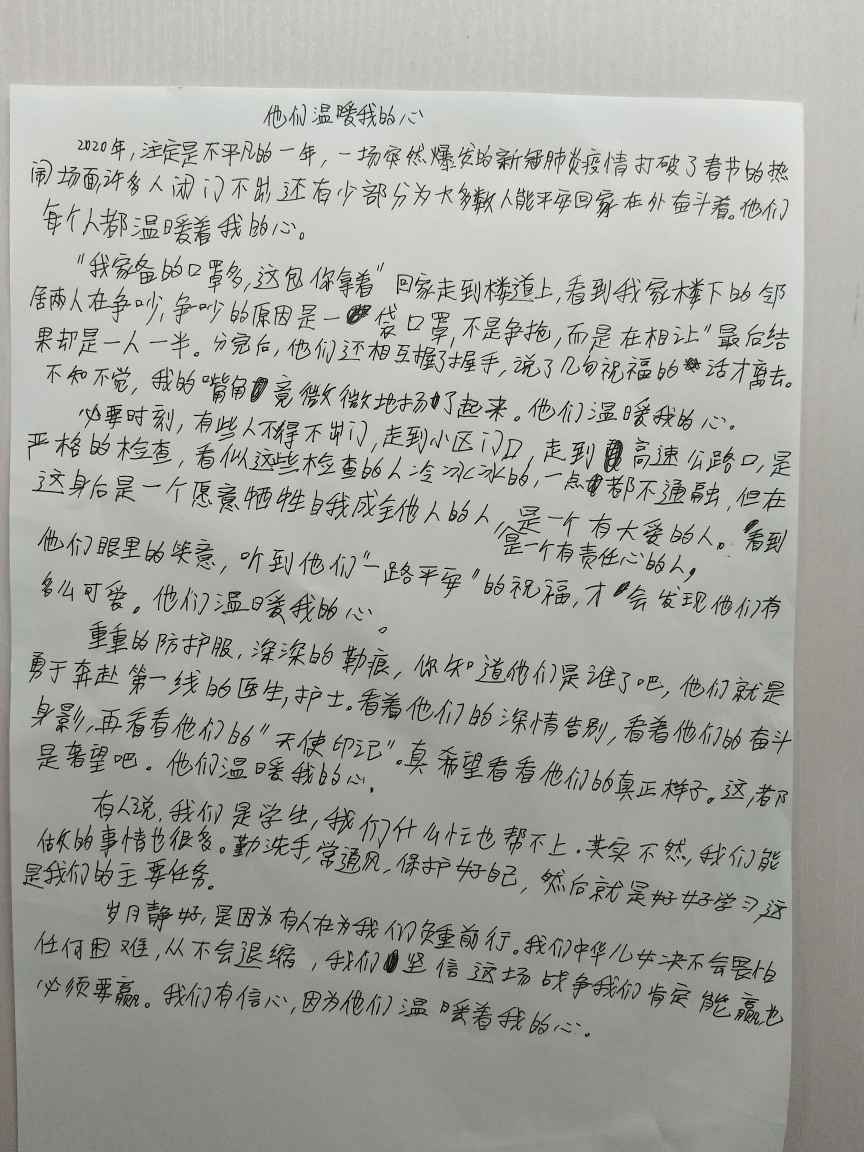 他们温暖我的心
2020年，注定是不平凡的一年，一场突然爆发的新冠肺炎疫情打破了春节的热
闹场面，许多人闭门不出还有少部分为大多数人能平安回家在外奋斗着。他们
每个人都温暖着我的心。
"我家备的口罩多，这包你拿着"回家走到楼道上，看到我家楼下的邻
居两人在争吵，争吵的原因是一袋口罩，不是争抢，而是在相让"最后结
果却是一人一半。分完后，他们还相互握了握手，说了几句祝福的话才离去。
不知不觉，我的嘴角竟微微地扬了起来。他们温暖我的心。
必要时刻，有些人不得不出门，走到小区门口，走到高速公路口，是
严格的检查，看似这些检查的人冷冰冰的，一点都不通融，但在
这身后是一个愿意牺牲自我成全他人的人，是一个有大爱的人。看到
是一个有责任心的人，
他们眼里的笑意，听到他们"一路平安"的祝福，才会发现他们有
多么可爱。他们温暖我的心。
重重的防护服，深深的勒痕，你知道他们是谁了吧，他们就是
勇于奔赴第一线的医生，护士。看着他们的深情告别，看着他们的奋斗
身影，再看看他们的"天使印记"。真希望看看他们的真正样子。这，都
是奢望吧。他们温暖我的心。
有人说，我们是学生，我们什么忙也帮不上。其实不然，我们能
做的事情也很多。勤洗手，常通风，保护好自己，然后就是好好学习，这
是我们的主要任务。
岁月静好，是因为有人在为我们负重前行。我们中华儿女决不会畏怕
任何困难，从不会退缩，我们坚信这场战争我们肯定能赢，也
必须要赢。我们有信心，因为他们温暖着我的心。